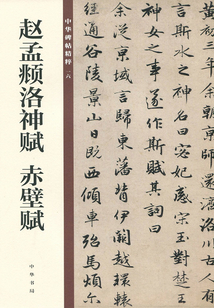 中华碑帖精粹 · 六
赵孟頫洛神赋 赤壁赋
中华书局
余朝京師還濟洛川古人有
言斯水之神名曰宓妃感宋玉對楚王
神女之事遂作斯賦其詞曰
余從京域言歸東藩背伊闕越轘轅
經通谷陵景山日既西傾車殆馬煩尔